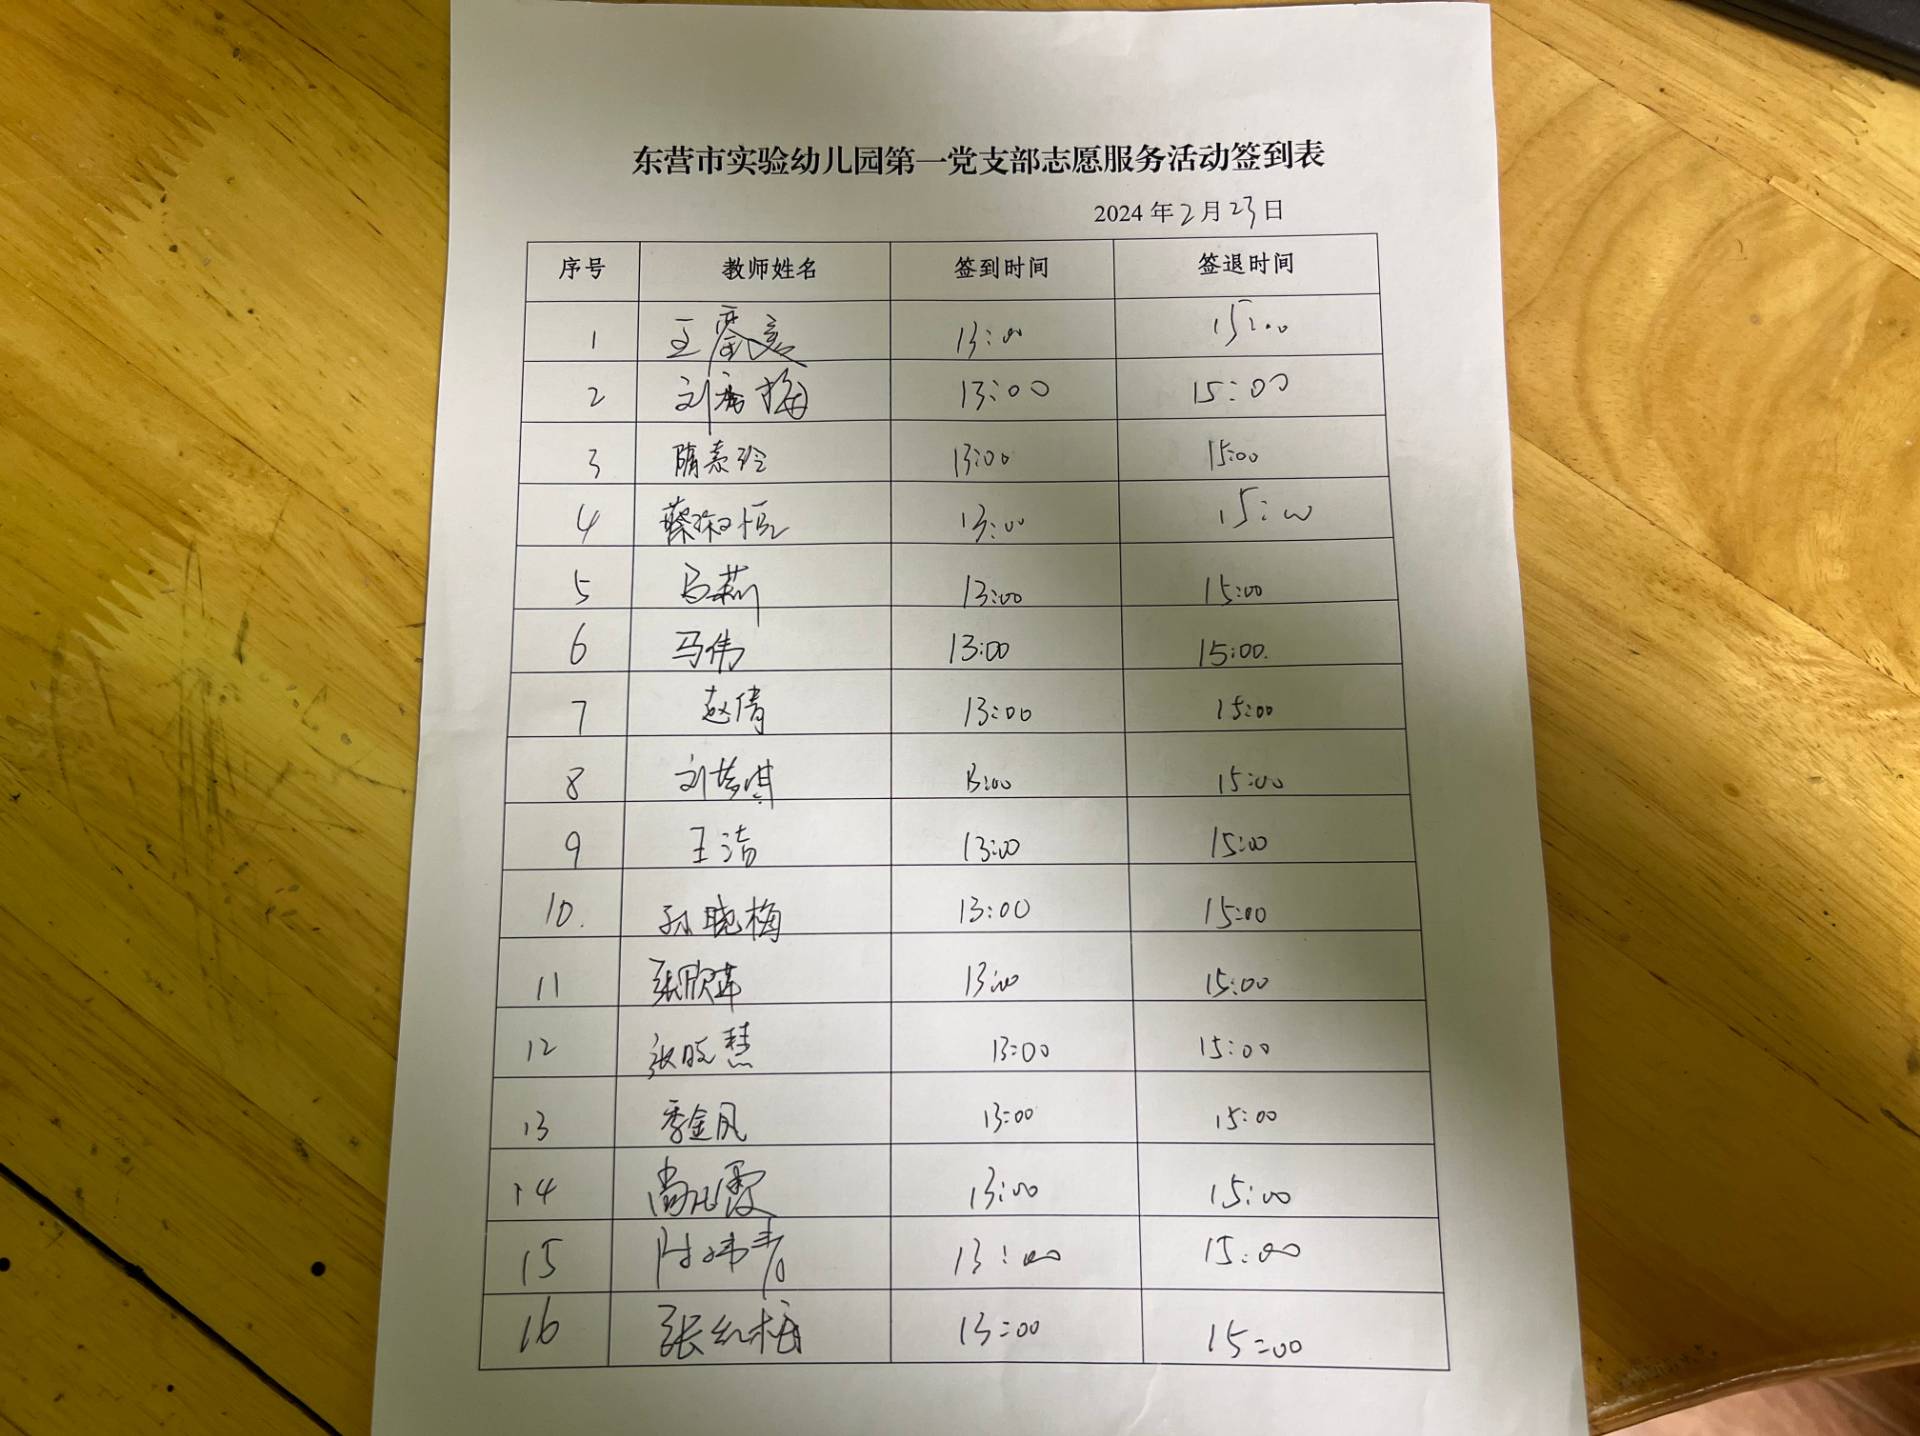 东营市实验幼儿园第一党支部志愿服务活动签到表
2024年2月23日
序号 教师姓名 签到时间 签退时间
1 王 13:00 15:00
2 刘 梅 13:00 15:00
3 隋素玲 13:00 15:00
4 蔡淑恒 13:00 15:00
5 马莉 13:00 15:00
6 马伟 13:00 15:00.
7 赵倩 13:00 15:00
8 刘梦琪 13:00 15:00
9 王洁 13:00 15:00
10. 孙晓梅 13:00 15:00
11 张欣萍 13:00 15:00
12 张晓慧 13:00 15:00
13 季金凤 13:00 15:00
14 尚 霞 13:00 15:00
15 陈 青 13:00 15:00
16 张红梅 13:00 15:00